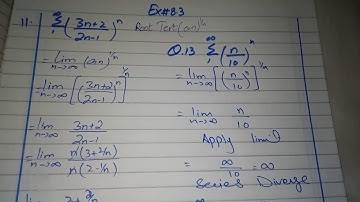 Ex#8.3
11. ∞ Σ 1 (3n+2 / 2n-1)^n Root Test (an)^1/n
= lim n→∞ (an)^1/n
= lim n→∞ [(3n+2 / 2n-1)^n]^1/n
= lim n→∞ 3n+2 / 2n-1
= lim n→∞ n(3+2/n) / n(2-1/n)
Q.13 ∞ Σ 1 (n/10)^n
= lim n→∞ [(n/10)^n]^1/n
= lim n→∞ n/10
Apply limit
= ∞/10 = ∞
Series Diverge